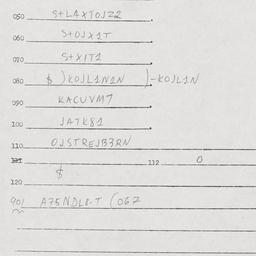 050 S+LAXTOJZ2.
060 S+OJX1T.
070 S+XIT1.
080 $ )KOJL1N1N )-KOJL1N
090 KACUVM7.
100 JATK81.
110 OJSTREJB3RN
121 112 0
120 $
901 A75NDL8-T (067